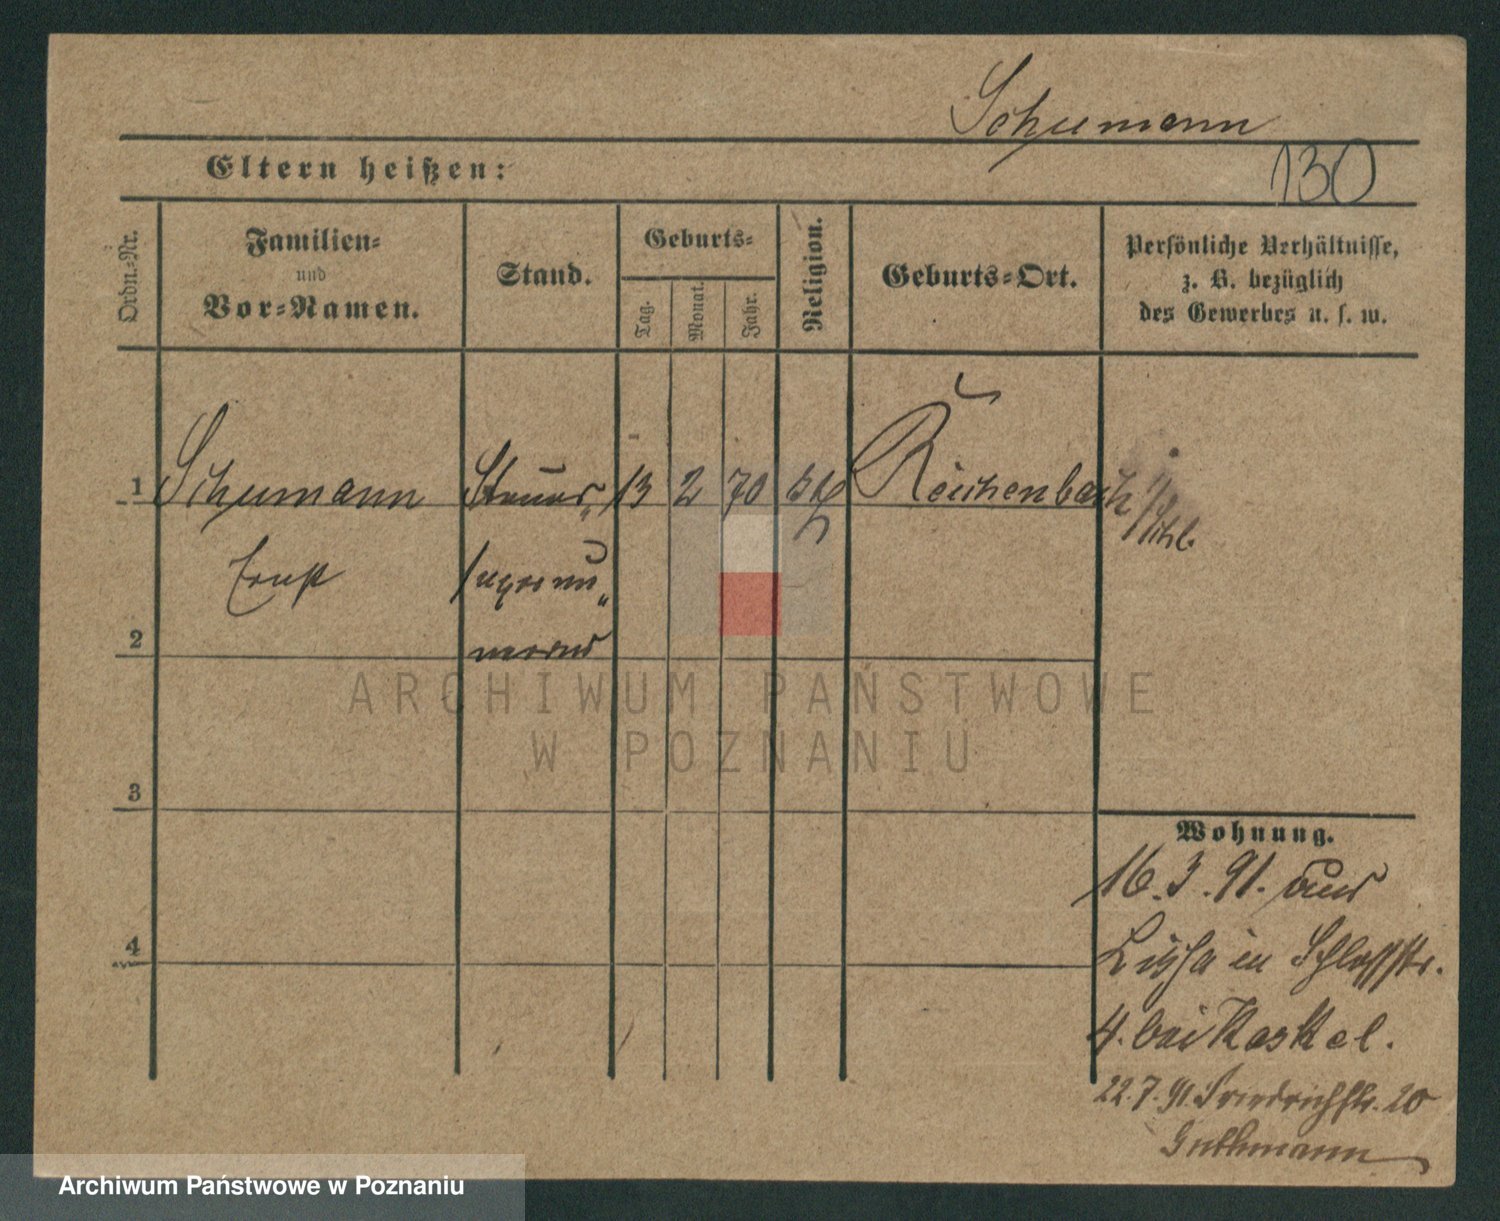 Schumann
130
Eltern heißen:
Ordn.-Nr.
Familien-
und
Vor-Namen.
Stand.
Geburts-
Tag.
Monat.
Jahr.
Religion.
Geburts-Ort.
Persönliche Verhältnisse,
z. B. bezüglich
des Gewerbes u. s. w.
1 Schumann Steuer- 13 2 70 Reichenbach
Ernst supernu-
2 merar
3
4
Wohnung.
16.3.91. aus
Lissa in Schloßstr.
4. bei Kaskel.
22.7.91. Friedrichstr. 20
Guthmann
ARCHIWUM PAŃSTWOWE
W POZNANIU
Archiwum Państwowe w Poznaniu